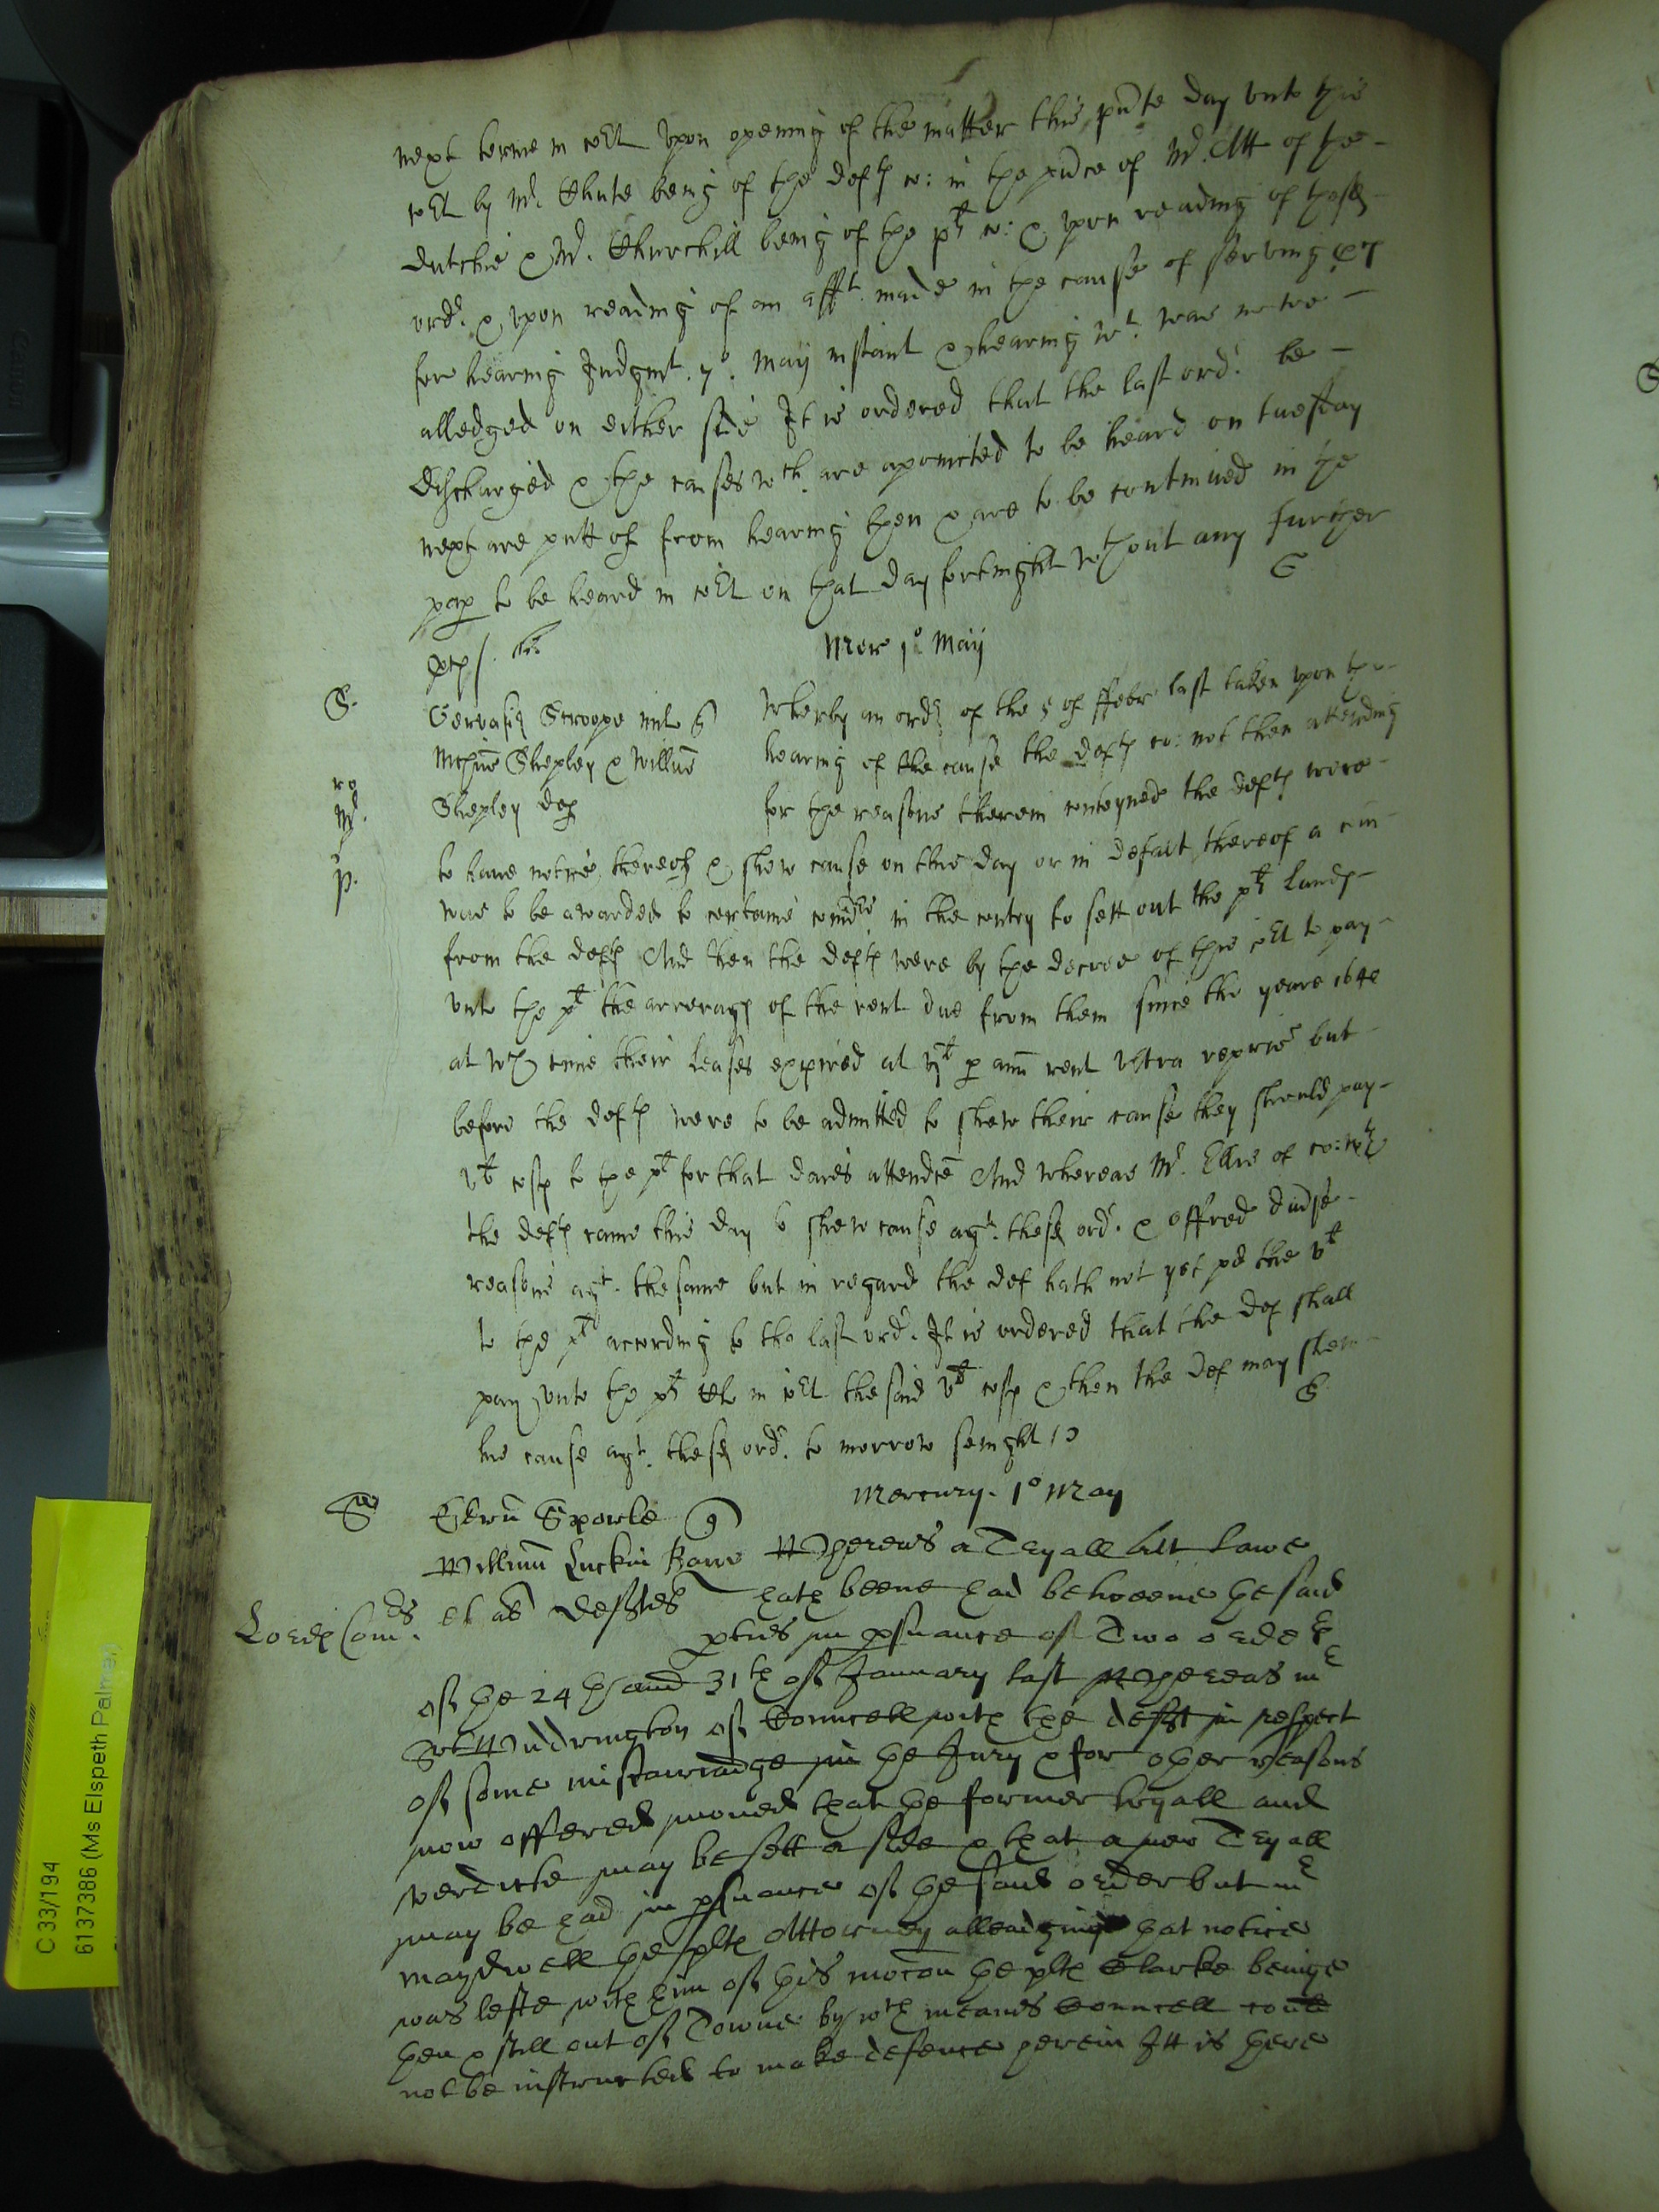 next terme in co.rt Upon opening of the matter this p'nte day unto this
co.rt by Mr. Chute being of the def.ts co: in the p'nce of Mr. Att of the
dutchie & Mr. Churchill being of the pl.ts co: & upon reading of the s.d
ord.r & upon reading of an aff.t made in the cause of serving
for hearing Judgm.t 7.o May instant & hearing w.t was
alledged on either side It is ordered that the last ord.r be
discharged & the causes w.ch are apointed to be heard on tuesday
next are putt of from hearing then & are to be continued in the
pap to be heard in co.rt on that day fortnight w.thout any further
Mer 1.o Maij
S.
Gervasius Scroope mil
Shepley & Willm
Shepley def
Wherby an ord.r of the 5 of ffebr last taken upon the
hearing of the cause the def.ts co: not then attending
for the reasons therein conteyned the def.ts were
to have notice thereof & shew cause on this day or in default thereof a
was to be awarded to certaine in the contry to sett out the pl.ts lands
from the def.ts And then the def.ts were by the decree of this co.rt to pay
unto the pl.t the arrerages of the rent due from them since the yeare
at w.ch time their leases expired at per ann rent ultra repris but
before the def.ts were to be admitted to shew their cause they should pay
v.li costs to the pl.t for that daies attendce And whereas Mr. Ellis of co: w.th
the def.ts came this day to shew cause ag.t the s.d ord.r & offred divse
reasons ag.t the same but in regard the def hath not yet pd the v.li
to the pl.t according to the last ord.r It is ordered that the def shall
pay unto the pl.ts Cl in co.rt the said v.li costs & then the def may shew
his cause ag.t the s.d ord.r to morrow senight
Mercury. 1.o May
Sporle
Willimu Luckin Barr
et als defftes
Lords Com.rs
Whereas a Tryall att Lawe
hath beene had betweene the said
pties in psuance of Two orders
of the 24th and 31th of January last Whereas mr
Srt Widdrington of Councell with the defft in respect
of some miscarriadge in the Jury & for other reasons
now offered moved that the former tryall and
verdicte may be sett a side & that a new Tryall
may be had in psuance of the said order but mr
Maydwell the plts Attorney alleadginge that notice
was lefte with him of this mocon the plts Clarke beinge
then & still out of Towne by w.ch meanes Councell could
not be instructed to make defence therein Itt is there
C 33/194
6137386 (Ms Elspeth Palmer)